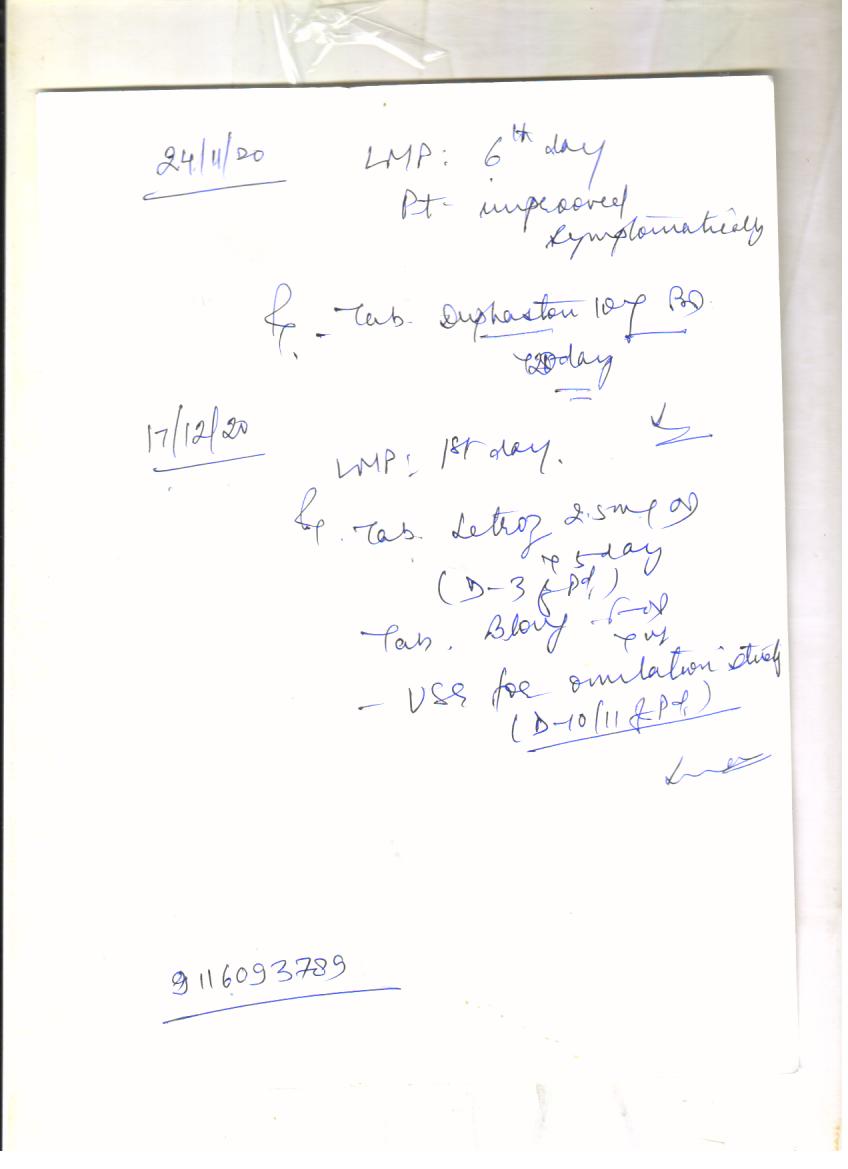 24/11/20 LMP: 6th day
Pt- improoved
symptomatically
Rx. - Tab. Duphaston 10mg BD
x 20 day
17/12/20
LMP: 1st day.
Rx. Tab. Letroz 2.5mg OD
x 5 day
(D-3 of Pd.)
Tab.
- USG for ovulation study
(D-10/11 of Pd.)
9116093789